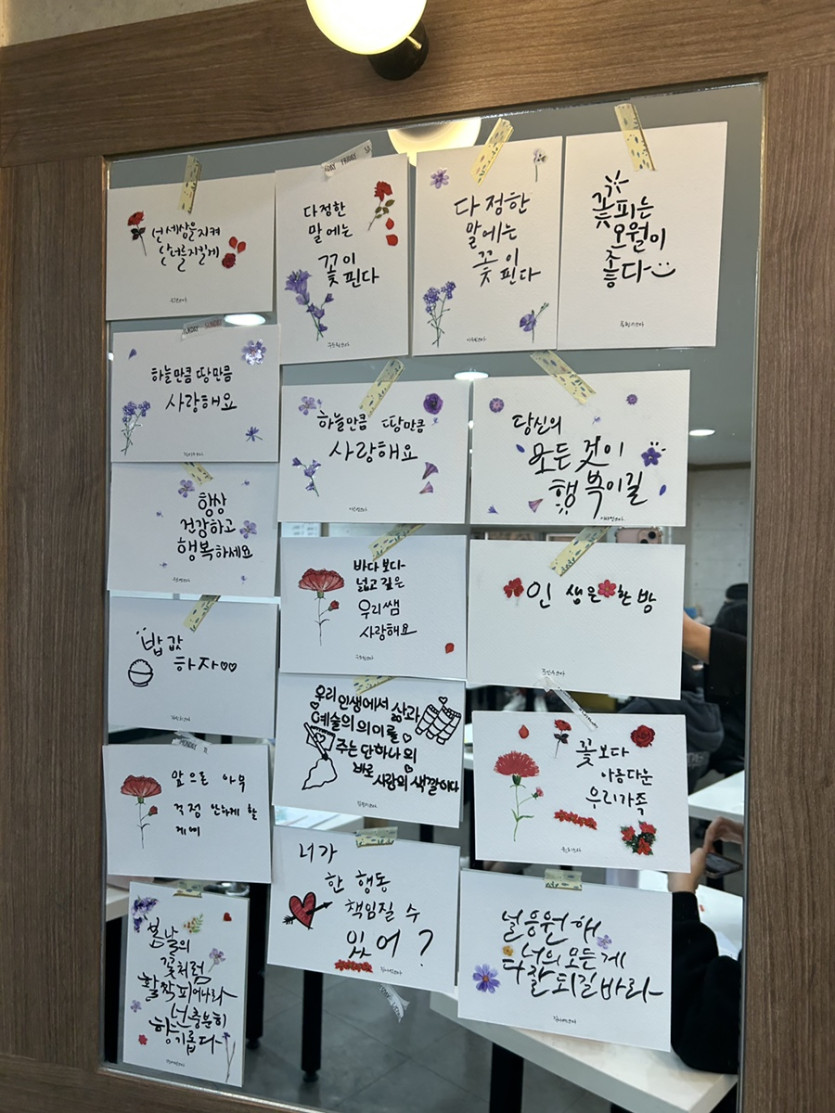 넌 세상을 지켜
난 너를 지킬게
다정한
말에는
꽃이
핀다
다정한
말에는
꽃이
핀다
꽃피는
오월이
좋다
하늘만큼 땅만큼
사랑해요
하늘만큼 땅만큼
사랑해요
당신의
모든 것이
행복이길
항상
건강하고
행복하세요
바다보다
넓고 깊은
우리쌤
사랑해요
인생은 한방
밥값
하자
우리 인생에서 삶과
예술의 의미를
주는 단 하나의
바로 사랑의 색깔이다
꽃보다
아름다운
우리가족
앞으론 아무
걱정 안하게 할
게예
너가
한 행동
책임질 수
있어?
널 응원해
너의 모든 게
다 잘 되길 바라
봄날의
꽃처럼
활짝 피어나라
넌 충분히
향기롭다